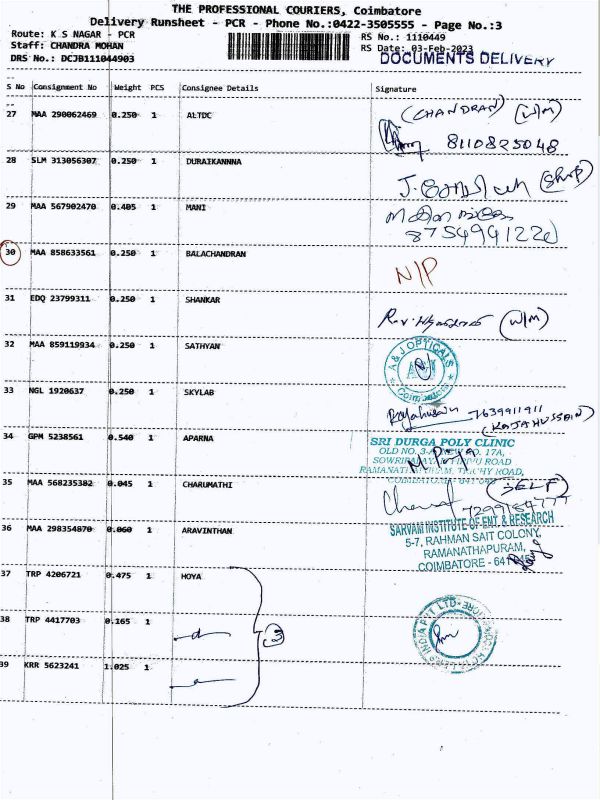 THE PROFESSIONAL COURIERS, Coimbatore
Delivery Runsheet - PCR - Phone No.:0422-3505555 - Page No.:3
Route: K S NAGAR - PCR RS No.: 1110449
Staff: CHANDRA MOHAN RS Date: 03-Feb-2023
DRS No.: DCJB111044903 DOCUMENTS DELIVERY
S No Consignment No Weight PCS Consignee Details Signature
27 MAA 290062469 0.250 1 ALTDC (CHANDRAN) (W/M)
8110825048
28 SLM 313056307 0.250 1 DURAIKANNNA
29 MAA 567902470 0.405 1 MANI
30 MAA 858633561 0.250 1 BALACHANDRAN N/P
31 EDQ 23799311 0.250 1 SHANKAR (W/M)
32 MAA 859119934 0.250 1 SATHYAN
A & J OPTICALS
Coimbatore
33 NGL 1920637 0.250 1 SKYLAB 7639911911
(KAJAHUSSAIN)
34 GPM 5238561 0.540 1 APARNA
SRI DURGA POLY CLINIC
OLD NO. 3-A, NEW NO. 17A,
ROAD
RAMANATHAPURAM, TRICHY ROAD,
35 MAA 568235382 0.045 1 CHARUMATHI (SELF)
36 MAA 298354870 0.060 1 ARAVINTHAN
SARVAM INSTITUTE OF ENT & RESEARCH
5-7, RAHMAN SAIT COLONY,
RAMANATHAPURAM,
COIMBATORE - 641 045
37 TRP 4206721 0.475 1 HOYA
38 TRP 4417703 0.165 1
3
39 KRR 5623241 1.025 1